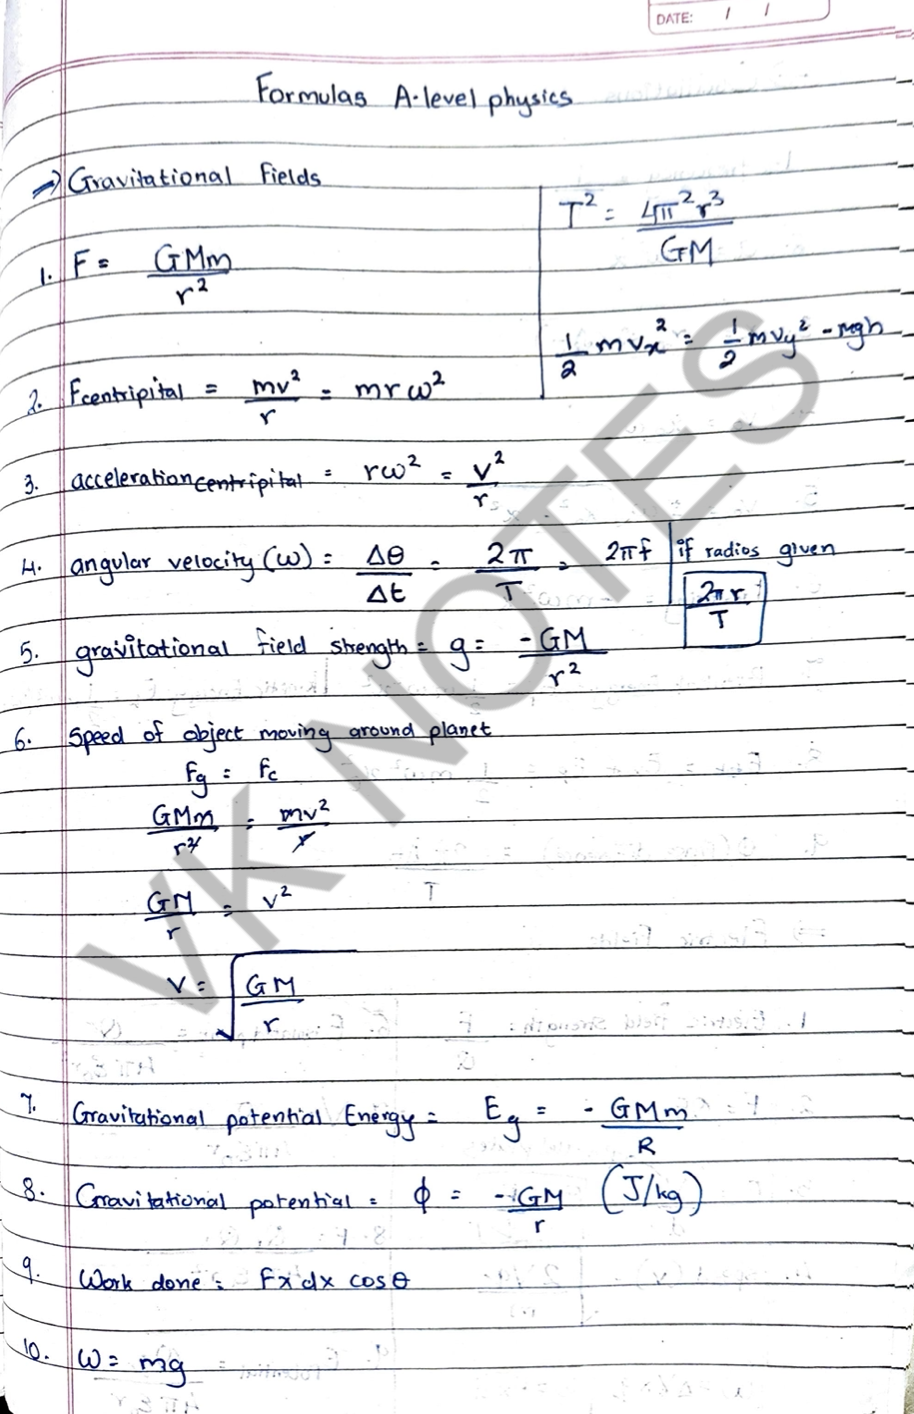 DATE: / /
Formulas A-level physics
→ Gravitational fields
1. F = GMm / r²
T² = 4π²r³ / GM
½ mvx² = ½ mvy² - mgh
2. Fcentripital = mv² / r = mrω²
3. acceleration centripital = rω² = v² / r
4. angular velocity (ω) = Δθ / Δt = 2π / T = 2πf
if radios given
2πr / T
5. gravitational field strength = g = -GM / r²
6. Speed of object moving around planet
Fg = Fc
GMm / r² = mv² / r
GM / r = v²
v = √(GM / r)
7. Gravitational potential Energy = Eg = - GMm / R
8. Gravitational potential = ϕ = - GM / r (J/kg)
9. Work done = F x d x cosθ
10. ω = mg
VK NOTES